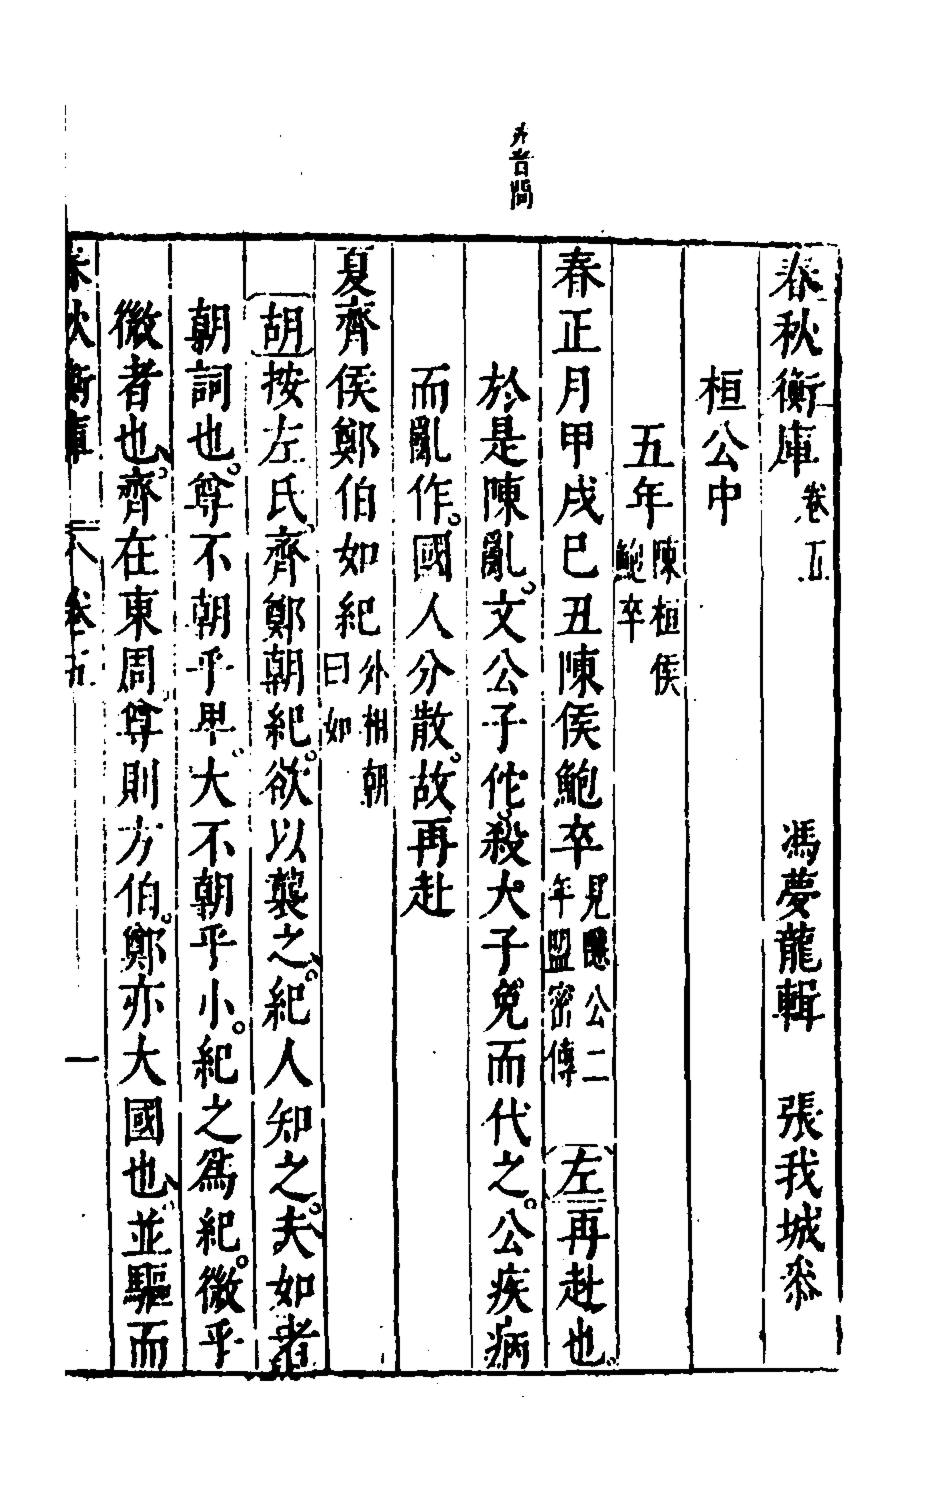 春秋衡庫 卷五 馮夢龍輯 張我城叅
桓公中
五年 陳桓侯鮑卒
春正月甲戌巳丑陳侯鮑卒 見隱公二年盟密傳 左再赴也
於是陳亂文公子佗殺大子免而代之公疾病
而亂作國人分散故再赴
夏齊侯鄭伯如紀 外相朝曰如
胡按左氏齊鄭朝紀欲以襲之紀人知之夫如者
朝詞也尊不朝乎卑大不朝乎小紀之爲紀微乎
微者也齊在東周尊則方伯鄭亦大國也並驅而
春秋衡庫 卷五 一